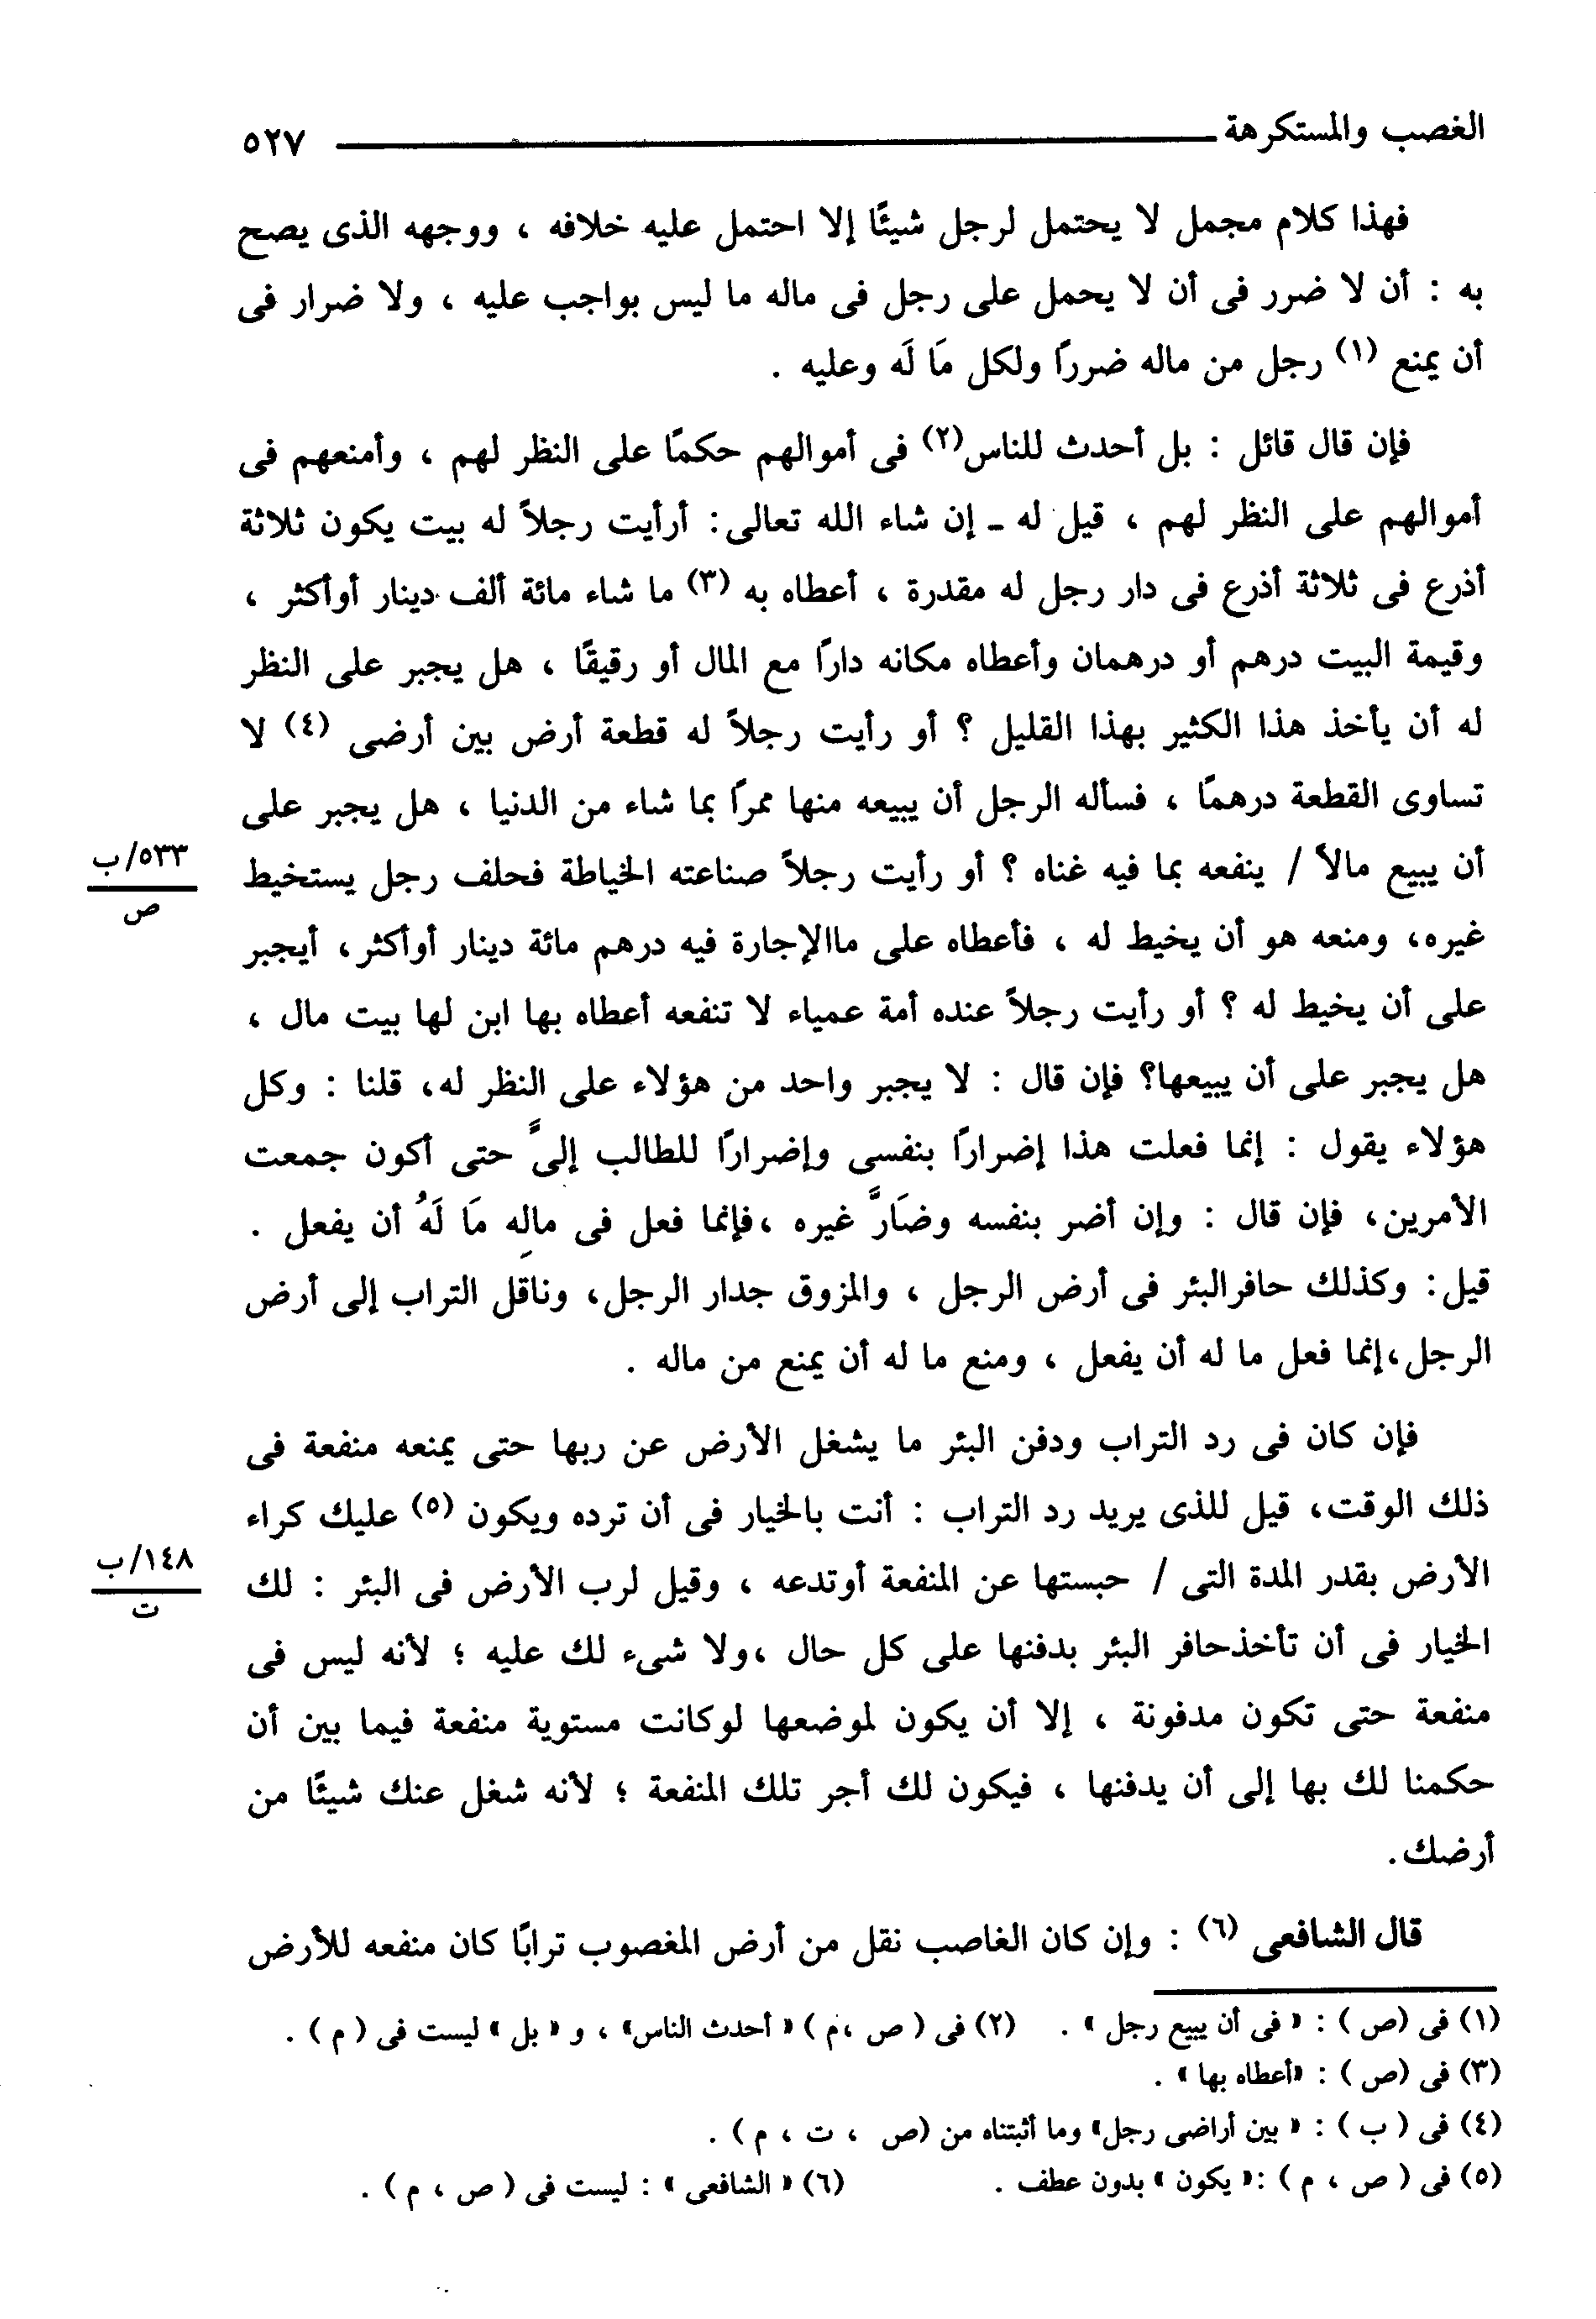 الغصب والمستكرهة ٥٢٧
فهذا كلام مجمل لا يحتمل لرجل شيئًا إلا احتمل عليه خلافه ، ووجهه الذى يصح
به : أن لا ضرر فى أن لا يحمل على رجل فى ماله ما ليس بواجب عليه ، ولا ضرار فى
أن يمنع (١) رجل من ماله ضررًا ولكل مَا لَه وعليه .
فإن قال قائل : بل أحدث للناس(٢) فى أموالهم حكمًا على النظر لهم ، وأمنعهم فى
أموالهم على النظر لهم ، قيل له ـ إن شاء الله تعالى: أرأيت رجلاً له بيت يكون ثلاثة
أذرع فى ثلاثة أذرع فى دار رجل له مقدرة ، أعطاه به (٣) ما شاء مائة ألف دينار أوأكثر ،
وقيمة البيت درهم أو درهمان وأعطاه مكانه دارًا مع المال أو رقيقًا ، هل يجبر على النظر
له أن يأخذ هذا الكثير بهذا القليل ؟ أو رأيت رجلاً له قطعة أرض بين أرضى (٤) لا
تساوى القطعة درهمًا ، فسأله الرجل أن يبيعه منها ممرًا بما شاء من الدنيا ، هل يجبر على
أن يبيع مالاً / ينفعه بما فيه غناه ؟ أو رأيت رجلاً صناعته الخياطة فحلف رجل يستخيط
٥٣٣/ب
ص
غيره، ومنعه هو أن يخيط له ، فأعطاه على ماالإجارة فيه درهم مائة دينار أوأكثر، أيجبر
على أن يخيط له ؟ أو رأيت رجلاً عنده أمة عمياء لا تنفعه أعطاه بها ابن لها بيت مال ،
هل يجبر على أن يبيعها؟ فإن قال : لا يجبر واحد من هؤلاء على النظر له، قلنا : وكل
هؤلاء يقول : إنما فعلت هذا إضرارًا بنفسى وإضرارًا للطالب إلىَّ حتى أكون جمعت
الأمرين، فإن قال : وإن أضر بنفسه وضَارَّ غيره ،فإنما فعل فى مالِه مَا لَهُ أن يفعل .
قيل: وكذلك حافرالبئر فى أرض الرجل ، والمزوق جدار الرجل، وناقل التراب إلى أرض
الرجل،إنما فعل ما له أن يفعل ، ومنع ما له أن يمنع من ماله .
فإن كان فى رد التراب ودفن البئر ما يشغل الأرض عن ربها حتى يمنعه منفعة فى
ذلك الوقت، قيل للذى يريد رد التراب : أنت بالخيار فى أن ترده ويكون (٥) عليك كراء
الأرض بقدر المدة التى / حبستها عن المنفعة أوتدعه ، وقيل لرب الأرض فى البئر : لك
١٤٨/ب
ت
الخيار فى أن تأخذحافر البئر بدفنها على كل حال ،ولا شىء لك عليه ؛ لأنه ليس فى
منفعة حتى تكون مدفونة ، إلا أن يكون لموضعها لوكانت مستوية منفعة فيما بين أن
حكمنا لك بها إلى أن يدفنها ، فيكون لك أجر تلك المنفعة ؛ لأنه شغل عنك شيئًا من
أرضك.
قال الشافعى (٦) : وإن كان الغاصب نقل من أرض المغصوب ترابًا كان منفعه للأرض
(١) فى (ص) : « فى أن يبيع رجل » . (٢) فى ( ص ،م ) « أحدث الناس» ، و « بل » ليست فى ( م ) .
(٣) فى (ص) : «أعطاه بها » .
(٤) فى ( ب ) : « بين أراضى رجل» وما أثبتناه من (ص ، ت ، م ) .
(٥) فى ( ص ، م ) :« يكون » بدون عطف . (٦) « الشافعى » : ليست فى ( ص ، م ) .